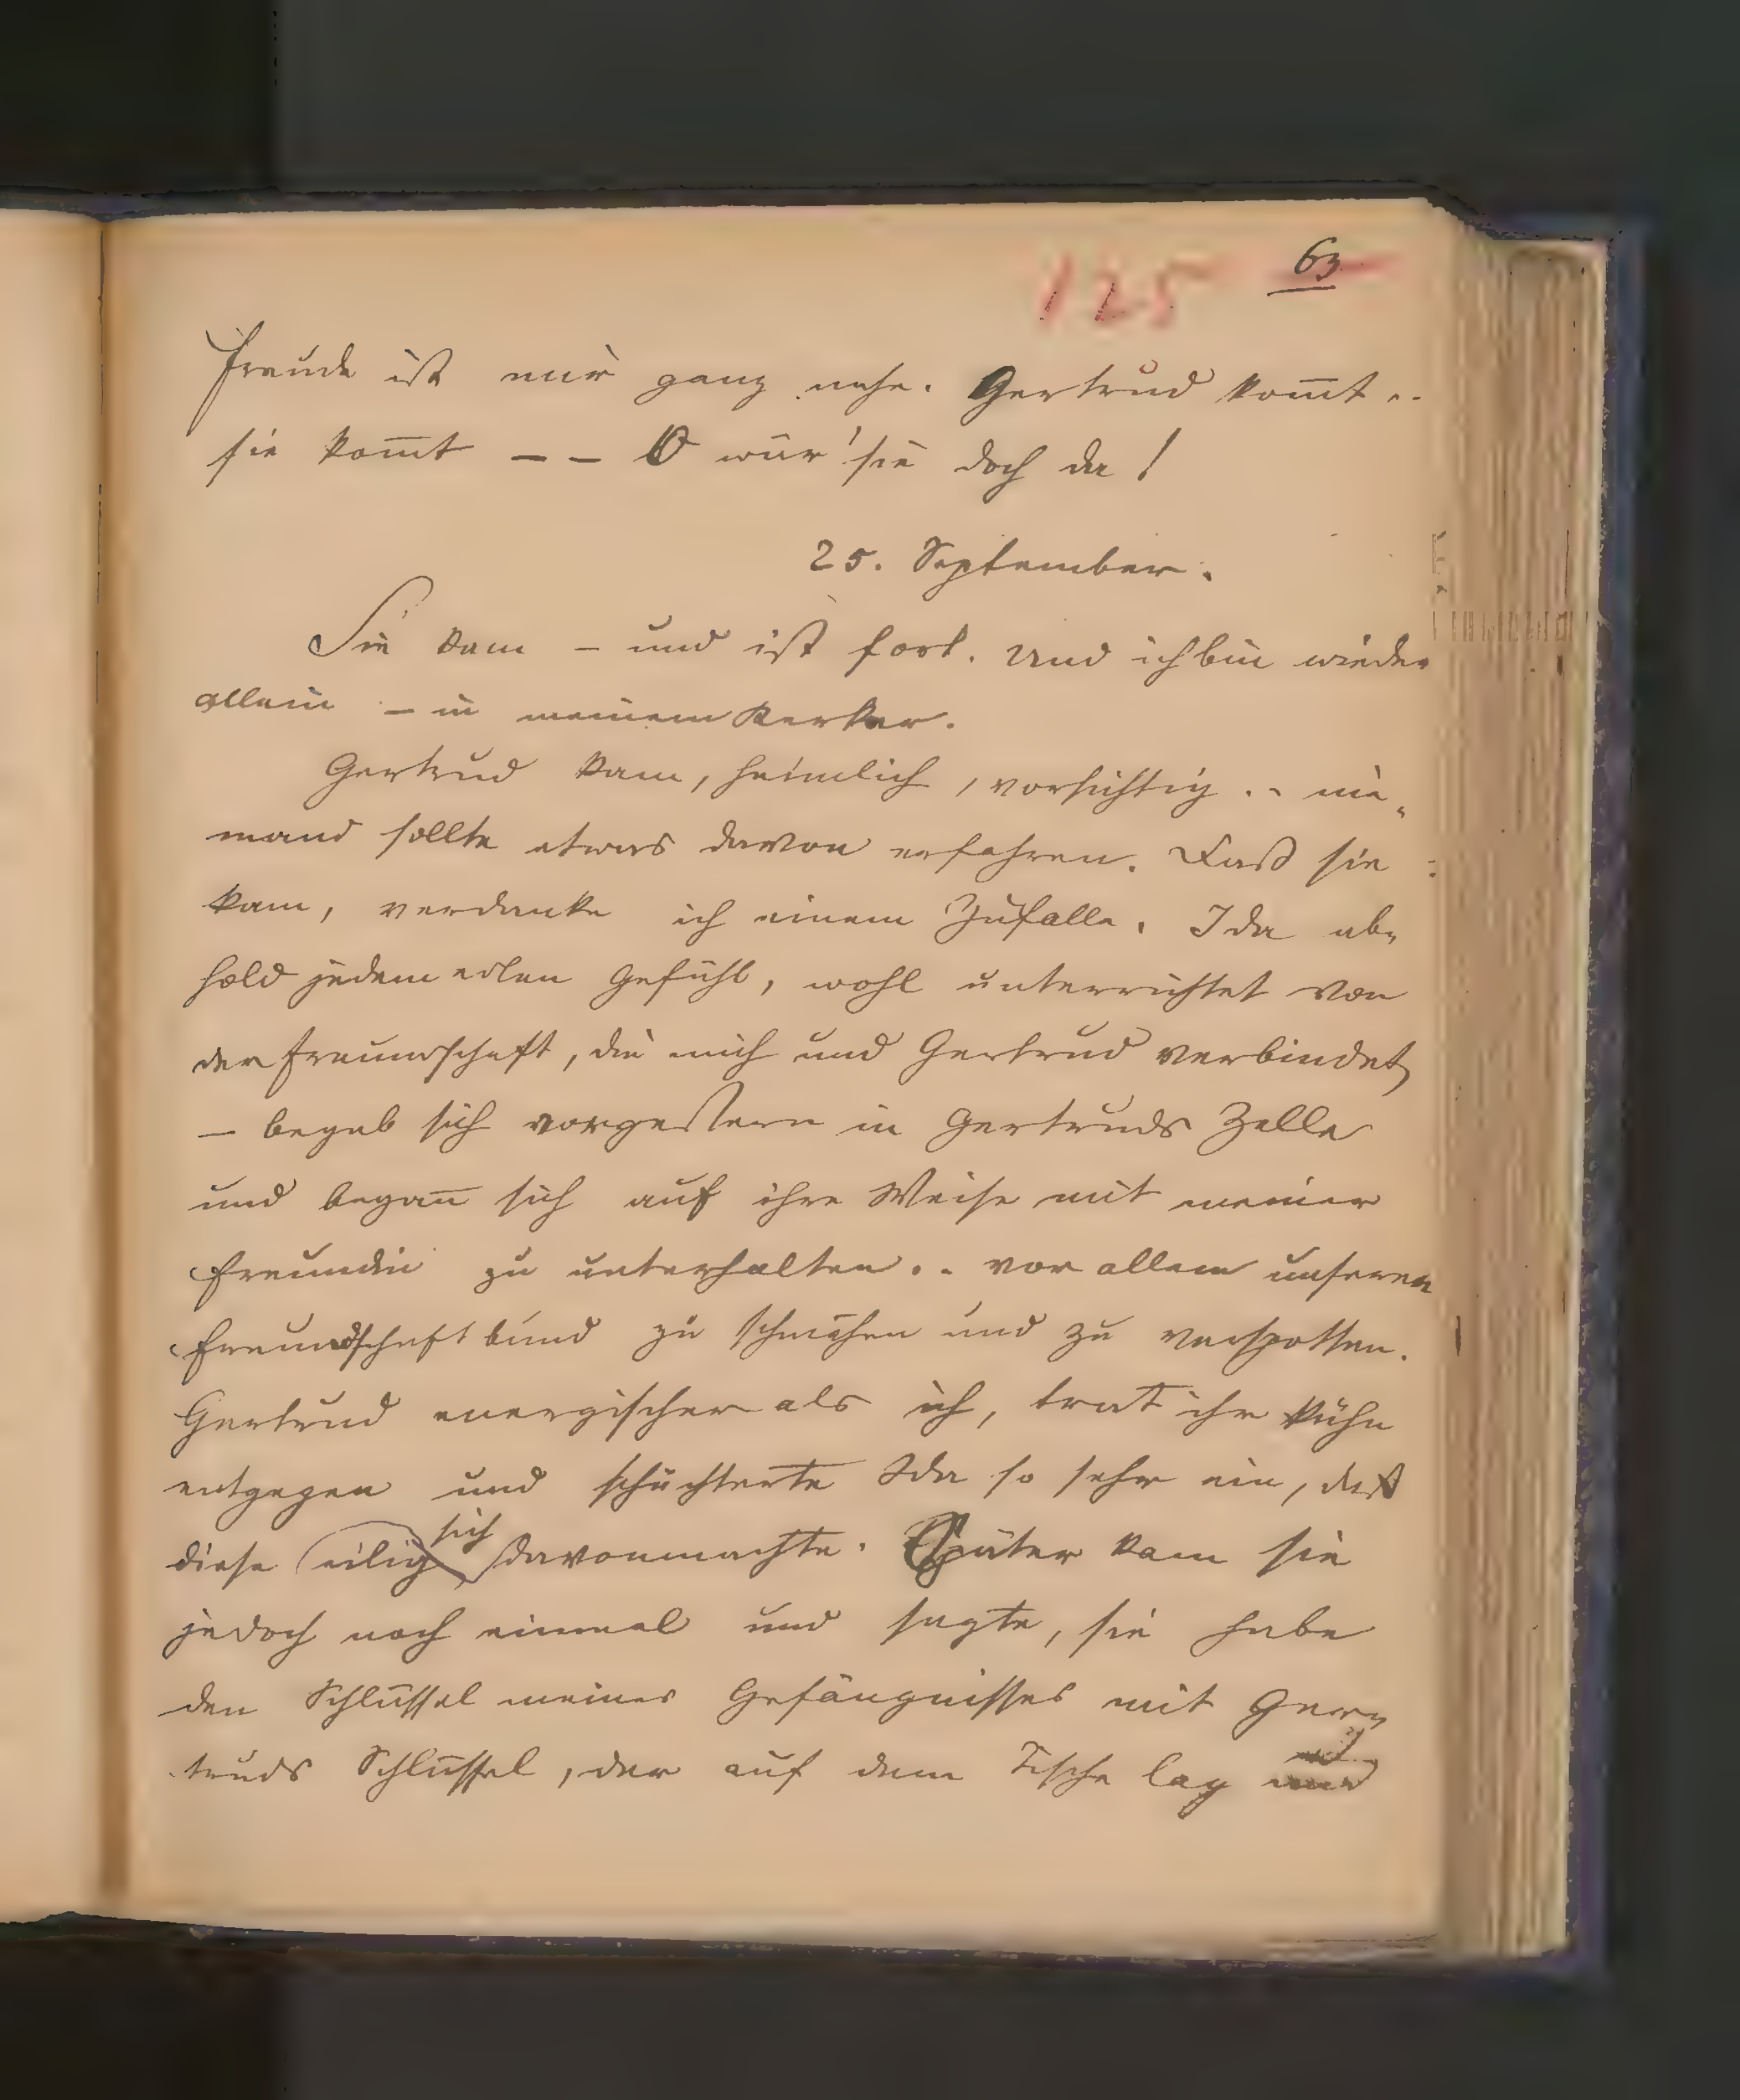 125 63
Freude ist mir ganz nahe. Gertrud kom̅t ..
sie kom̅t – – O wär' sie doch da!
25. September.
Sie kam – und ist fort. Und ich bin wieder
allein – in meinem Kerker.
Gertrud kam, heimlich, vorsichtig .. nie-
mand sollte etwas davon erfahren. Daß sie
kam, verdanke ich einem Zufalle. Ida ab-
hold jedem edlen Gefühl, wohl unterrichtet von
der Freundschaft, die mich und Gertrud verbindet,
– begab sich vorgestern in Gertruds Zelle
und began̅ sich auf ihre Weise mit meiner
Freundin zu unterhalten .. vor allem unseren
Freundschaftbund zu schmähen und zu verspotten.
Gertrud energischer als ich, trat ihr kühn
entgegen und schüchterte Ida so sehr ein, daß
sich
diese eilig davonmachte. Später kam sie
jedoch noch einmal und sagte, sie habe
den Schlüssel meines Gefängnisses mit Ger-
truds Schlüssel, der auf dem Tische lag